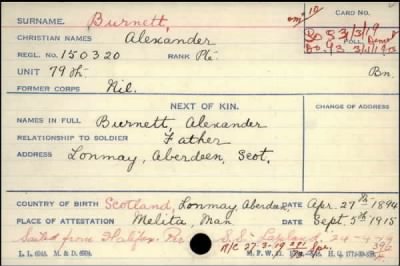 SURNAME. Burnett,
CARD NO.
CHRISTIAN NAMES Alexander
REGL. NO. 150320 RANK Pte.
UNIT 79th Bn.
FORMER CORPS Nil.
NEXT OF KIN.
CHANGE OF ADDRESS
NAMES IN FULL Burnett, Alexander
RELATIONSHIP TO SOLDIER Father
ADDRESS Lonmay, Aberdeen, Scot.
COUNTRY OF BIRTH Scotland, Lonmay Aberdeen DATE Apr. 27th 1894
PLACE OF ATTESTATION Melita, Man DATE Sept. 5th 1915
Sailed from Halifax Per S.S. Lapland
R/C 27-3-19
L. L. M. & D.
M. F. W.